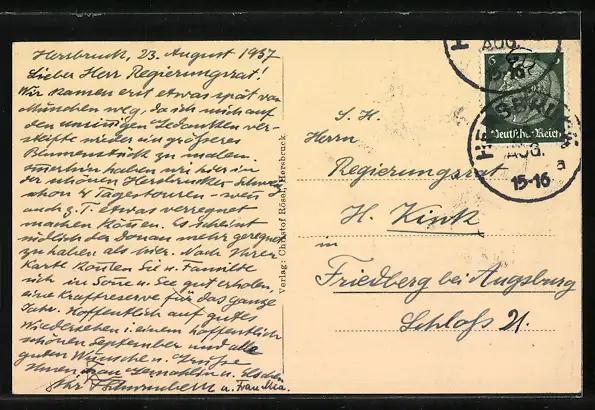 Hersbruck, 23. August 1937
Lieber Herr Regierungsrat!
Wir kamen erst etwas spät von
München weg, da ich mich auf
den unsinnigen Gedanken ver-
steifte wieder ein grösseres
Blumenstück zu malen.
Immerhin haben wir hier in
der schönen Hersbrucker Schweiz
schon 4 Tagestouren - wenn
auch z. T. etwas verregnet
machen können. Es scheint
südlich der Donau mehr geregnet
zu haben als hier. Nach Ihrer
Karte konnten Sie u. Familie
sich in Sonne u. See gut erholen,
eine Kraftreserve für das ganze
Jahr. Hoffentlich auf gutes
Wiedersehen i. einem hoffentlich
schönen September und alle
guten Wünsche u. Grüsse
Ihnen, Frau Gemahlin u.
Ihr u. Frau Mia.
Verlag: Christof Rösel, Hersbruck.
S. H.
Herrn
Regierungsrat
H. Kink
in
Friedberg bei Augsburg
Schloß 21.
6
Deutsches Reich
HERSBRUCK
AUG.
15-16
a
AUG.
15-16